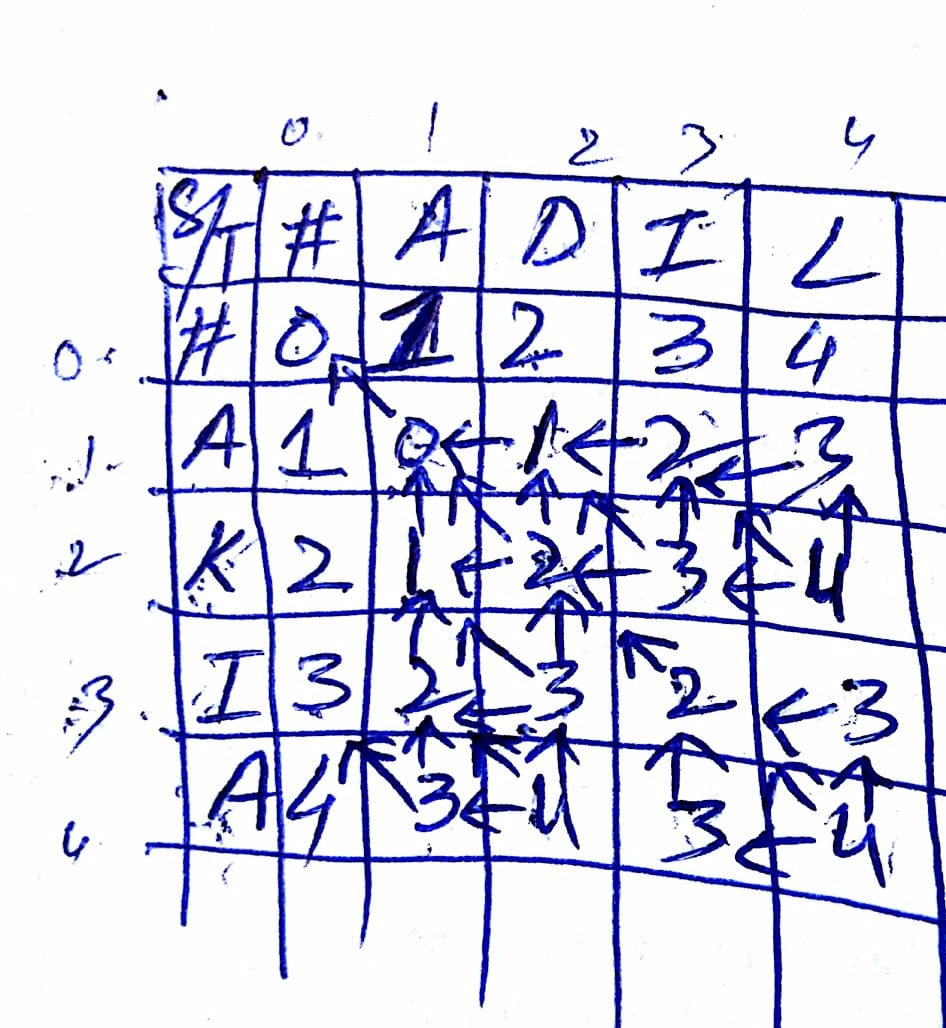 0 1 2 3 4
S/T # A D I L
0 # 0 1 2 3 4
1 A 1 0 ← 1 ← 2 ← 3
2 K 2 1 ← 2 ← 3 ← 4
3 I 3 2 ← 3 2 ← 3
4 A 4 3 ← 4 3 ← 4